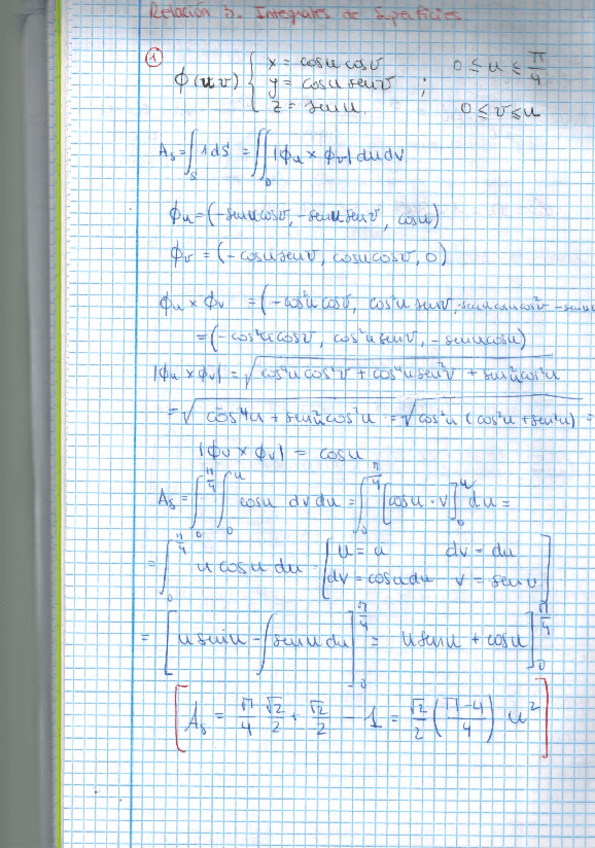 Relación 3. Integrales de Superficies
① ϕ(u,v) { x = cosu cosv   0 ≤ u ≤ π/4
y = cosu senv ;
z = senu   0 ≤ v ≤ u
As = ∫_S 1 dS = ∬_D |ϕu × ϕv| du dv
ϕu = (-senu cosv, -senu senv, cosu)
ϕv = (-cosu senv, cosu cosv, 0)
ϕu × ϕv = (-cos²u cosv, cos²u senv, -senu cosu cos²v - senu
= (-cos²u cosv, cos²u senv, -senu cosu)
|ϕu × ϕv| = √(cos⁴u cos²v + cos⁴u sen²v + sen²u cos²u
= √(cos⁴u + sen²u cos²u) = √(cos²u (cos²u + sen²u)) =
|ϕu × ϕv| = cosu
As = ∫_0^{π/4} ∫_0^u cosu dv du = ∫_0^{π/4} [cosu · v]_0^u du =
= ∫_0^{π/4} u cosu du · [u = u   dv = du
dv = cosu du   v = senv]
= [u senu - ∫senu du]_0^{π/4} = u senu + cosu]_0^{π/4}
[As = π/4 √2/2 + √2/2 - 1 = √2/2 (π-4/4) u²]